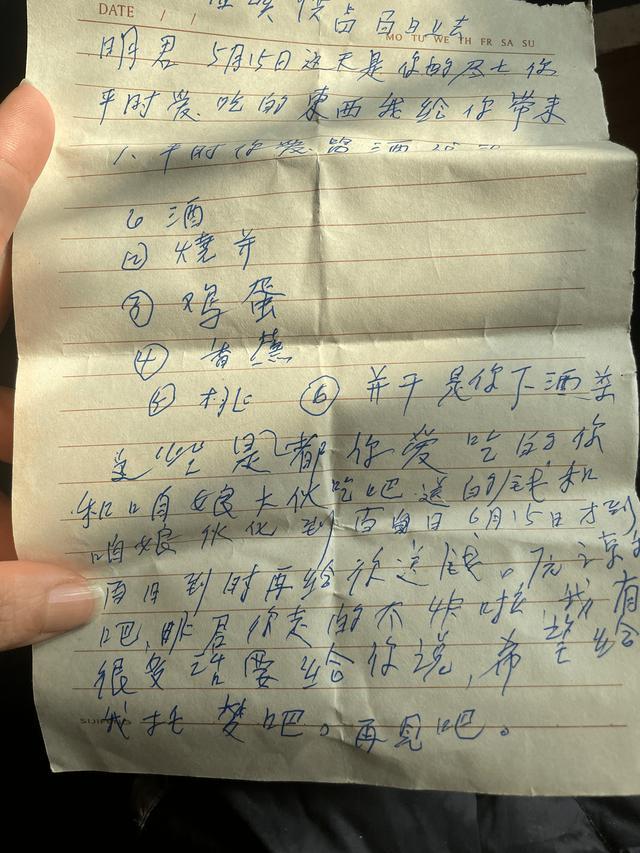 DATE / /
MO TU WE TH FR SA SU
百日
明君 5月15日这天是你的 你
平时爱吃的東西我给你带来
平时你爱 酒
① 酒
② 燒并
③ 鸡蛋
④ 香蕉
⑤ 桃 ⑥ 并干是你下酒菜
这些是都你爱吃的你
和咱娘大伙吃吧送的钱和
咱娘伙化到百 日6月15日才到
百日到时再给你送钱。
吧,明君你走的不 时 我有
很多话要给你说,希望给
我托梦吧。再見吧。